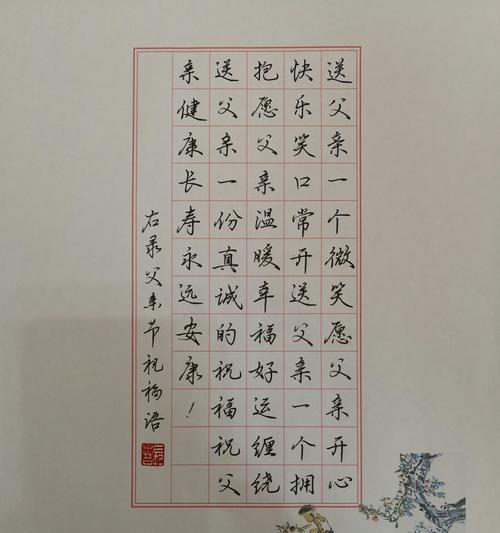 送父亲一个微笑愿父亲开心
快乐笑口常开送父亲一个拥
抱愿父亲温暖幸福好运缠绕
送父亲一份真诚的祝福祝父
亲健康长寿永远安康！
右录父亲节祝福语